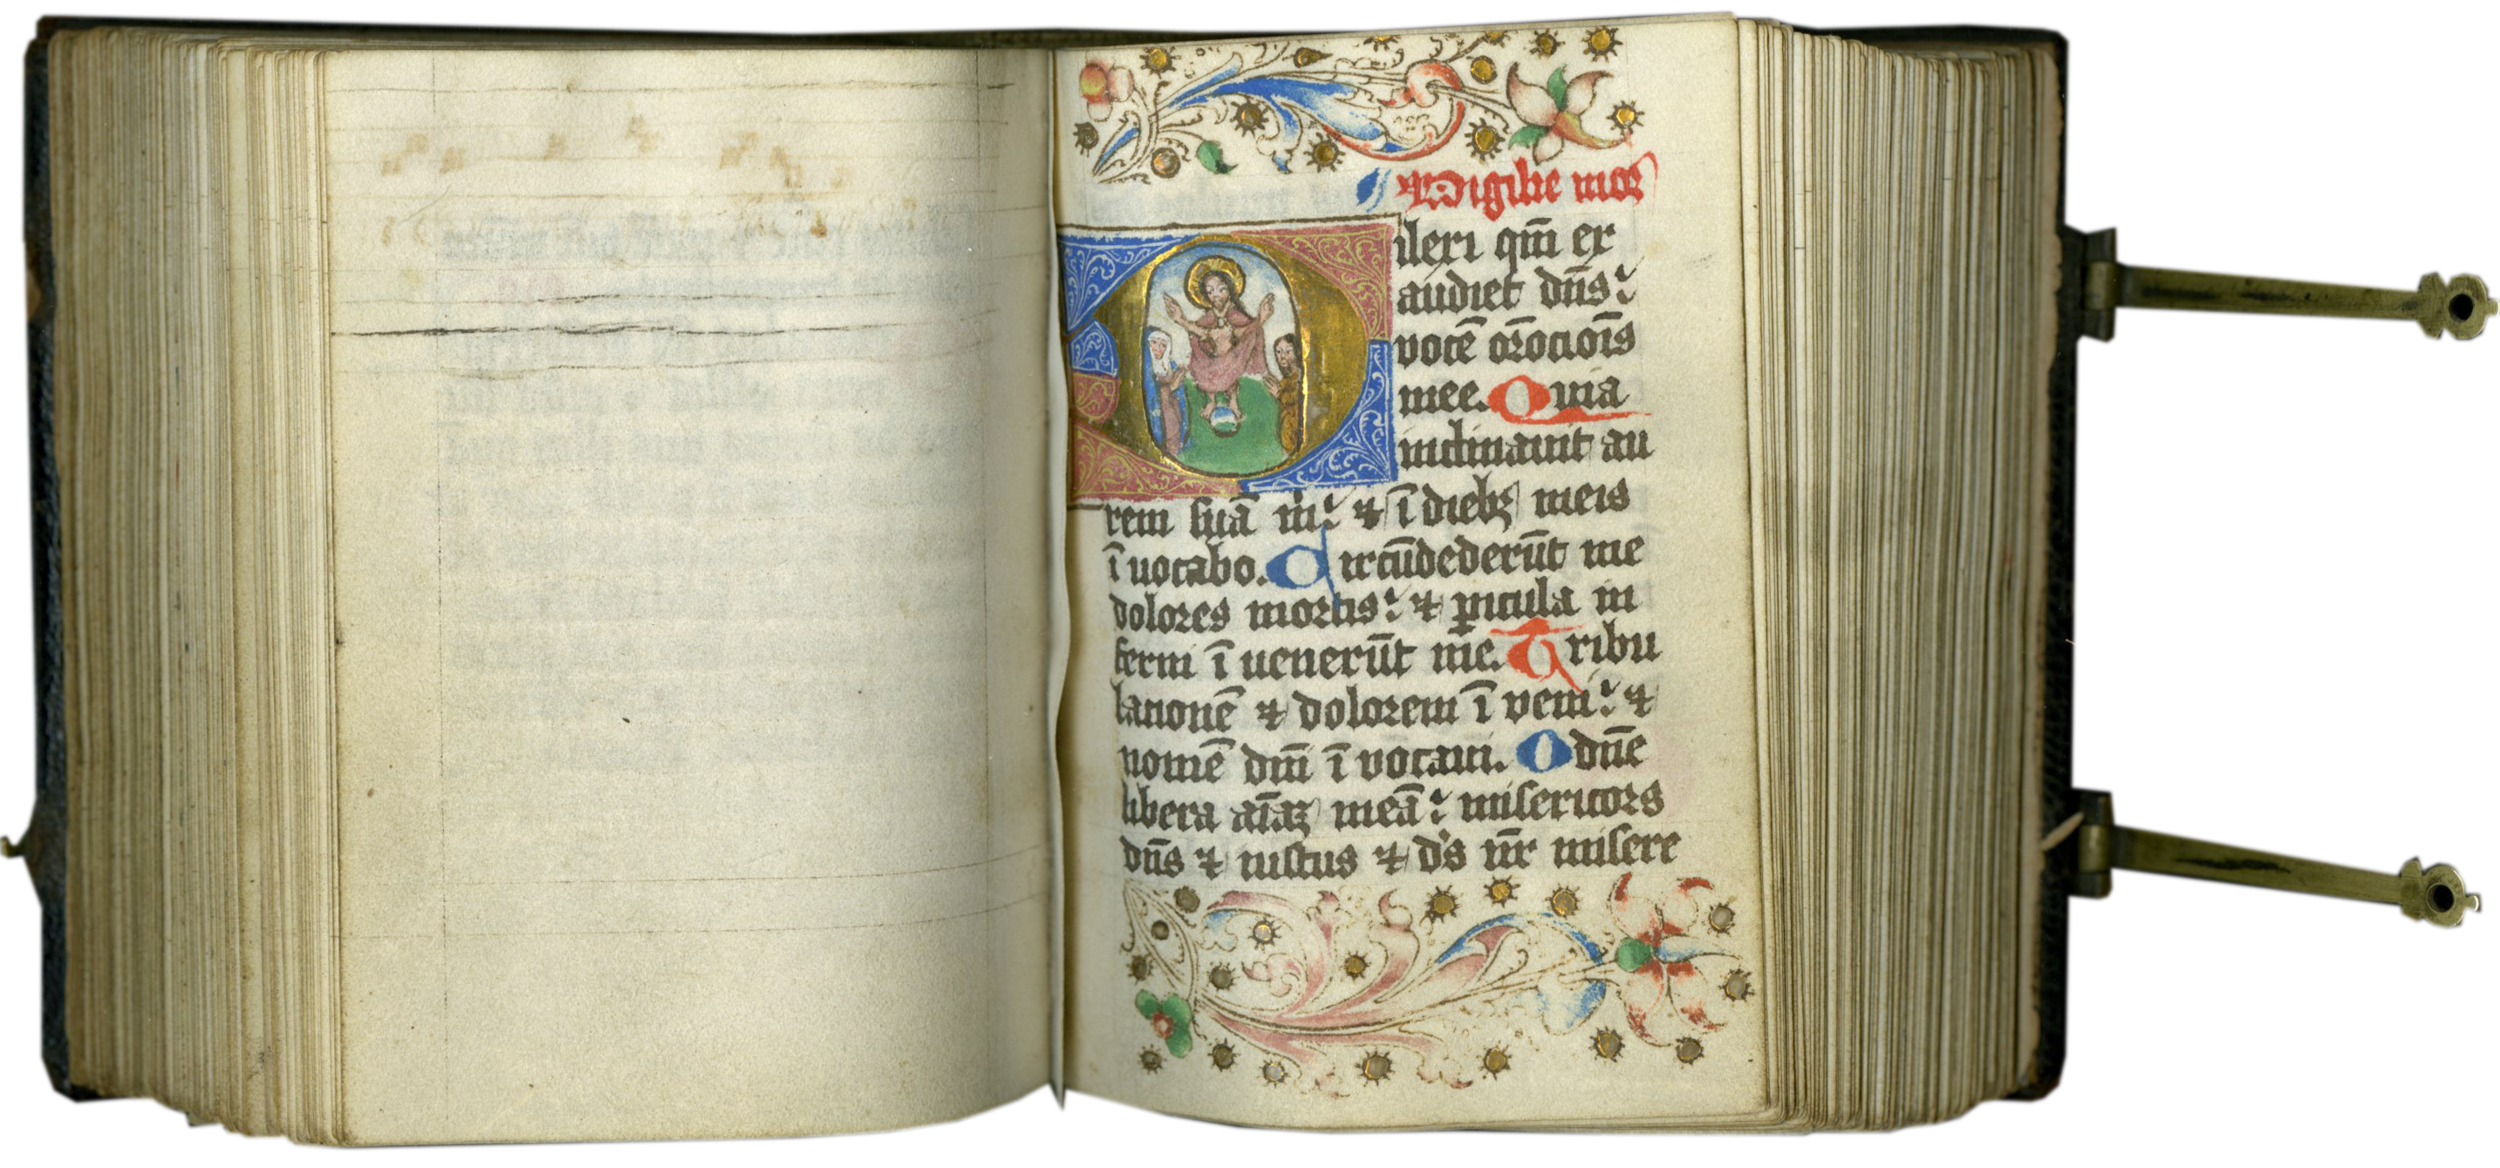 Vigilie mor
Dilexi qm̄ ex
audiet dn̄s:
vocē or̄onōis
mee. Quia
inclinauit au
rem suā m̄: ⁊ ī diebꝫ meis
ī uocabo. Circūdederūt me
dolores mortis: ⁊ ꝑicula in
ferni ī uenerūt me. Tribu
lacionē ⁊ dolorem ī veni: ⁊
nomē dn̄i ī vocaui. O dn̄e
libera aīaꝫ meā: misericors
dn̄s ⁊ iustus ⁊ ds̄ nr̄ misere